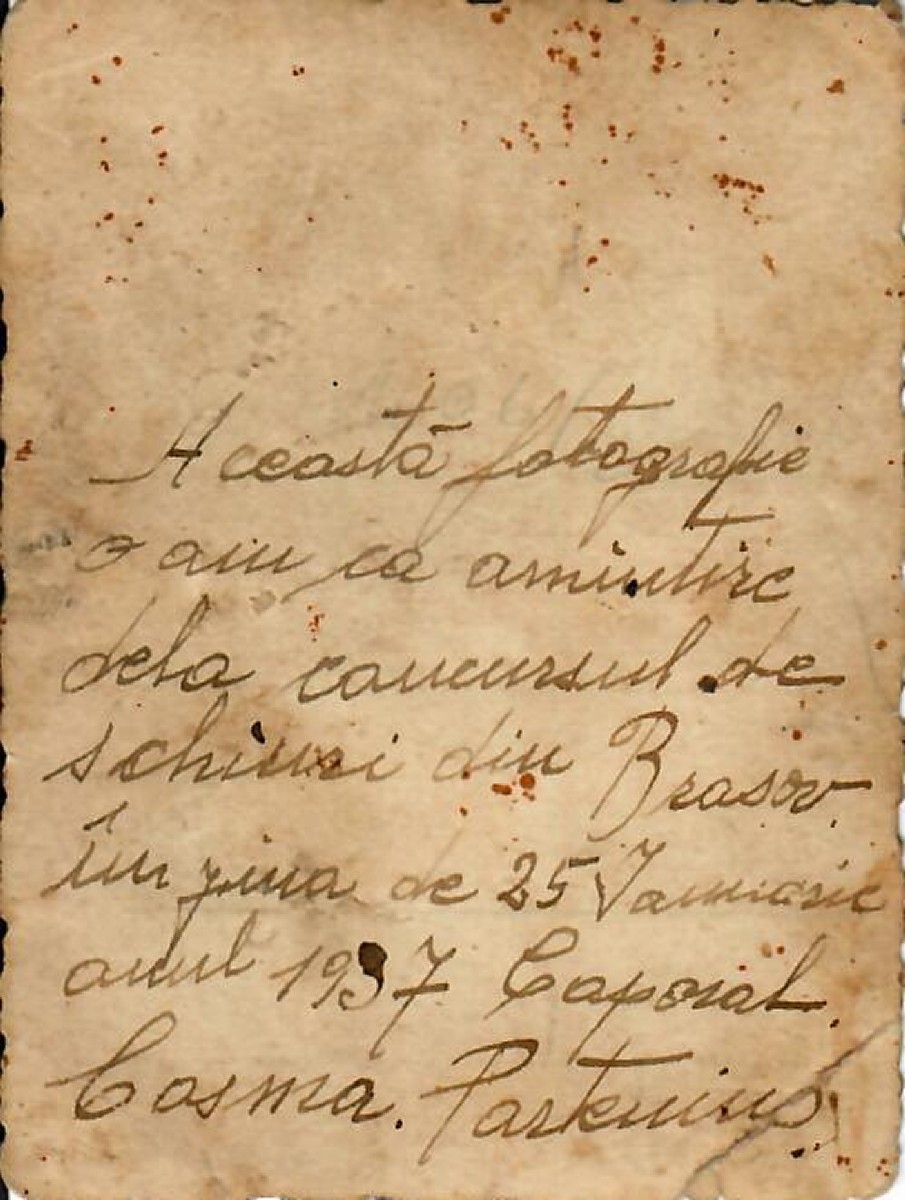 Această fotografie
o am ca amintire
dela concursul de
schiuri din Brasov.
în ziua de 25 Ianuarie
anul 1937 Caporal.
Cosma. Partenius.